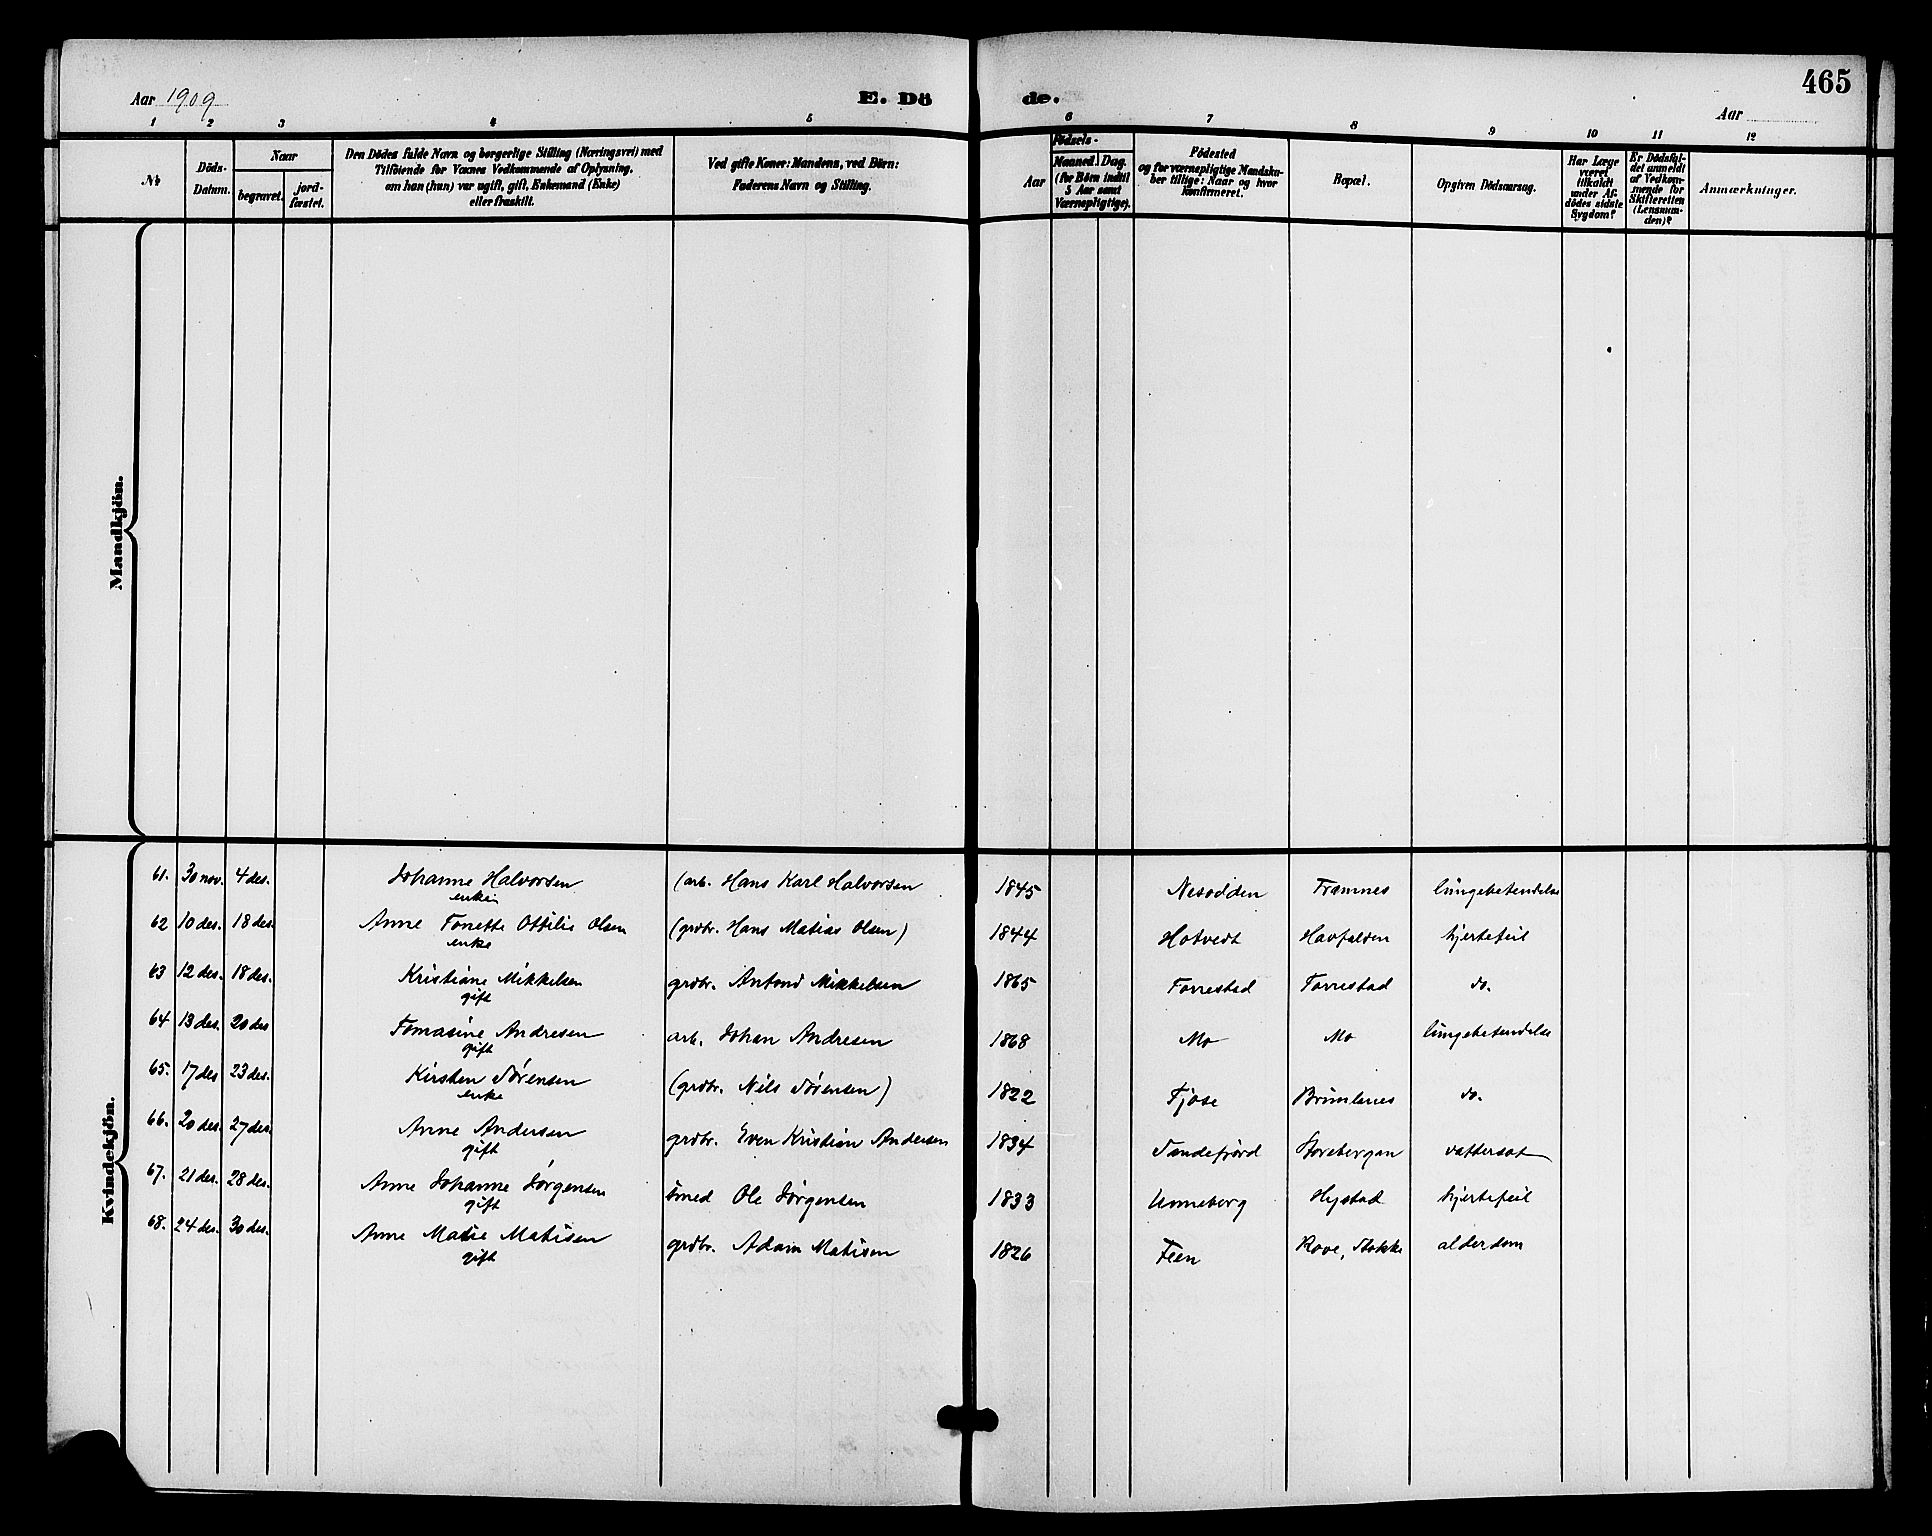 465
Aar 1909 E. Dö de. Aar
1 2 3 4 5 6 7 8 9 10 11 12
No
Döds-Datum.
Naar
begravet. jord-fæstet.
Den Dödes fulde Navn og borgerlige Stilling (Næringsvei) med
Tilföiende for Voxnes Vedkommende af Oplysning,
om han (hun) var ugift, gift, Enkemand (Enke)
eller fraskilt.
Ved gifte Koner: Mandens, ved Börn:
Faderens Navn og Stilling.
Födsels-
Aar
Maaned. Dag.
(for Börn indtil
5 Aar samt
Værnepligtige).
Födested
og for værnepligtige Mandska-
ber tillige: Naar og hvor
konfirmeret.
Bopæl.
Opgiven Dödsaarsag.
Har Læge
været
tilkaldt
under Af-
dödes sidste
Sygdom?
Er Dödsfal-
det anmeldt
af Vedkom-
mende for
Skifteretten
(Lensman-
den)?
Anmærkninger.
Mandkjön.
Kvindekjön.
61. 30 nov. 4 des. Johanne Halvorsen (arb. Hans Karl Halvorsen 1845 Nesodden Framnes lungebetendelse
enke
62 10 des. 18 des. Anne Tonette Ottilie Olsen (grdbr. Hans Matias Olsen) 1844 Hotvedt Havfalden hjertefeil
enke
63 12 des. 18 des. Kristiane Mikkelsen grdbr. Antond Mikkelsen 1865 Forrestad Forrestad do.
gift
64 13 des. 20 des Tomasine Andresen arb. Johan Andresen 1868 Mo Mo lungebetendelse
gift
65. 17 des 23 des. Kirsten Sörensen (grdbr. Nils Sörensen) 1822 Tjose Brunlanes do.
enke
66. 20 des. 27 des. Anne Andersen grdbr. Even Kristian Andersen 1834 Sandefjord Storebergan vattersot
gift
67. 21 des. 28 des. Anne Johanne Jörgensen smed Ole Jörgensen 1833 Unneberg Hystad hjertefeil
gift
68. 24 des. 30 des. Anne Marie Matisen grdbr. Adam Matisen 1826 Feen Rove, Stokke alderdom
gift